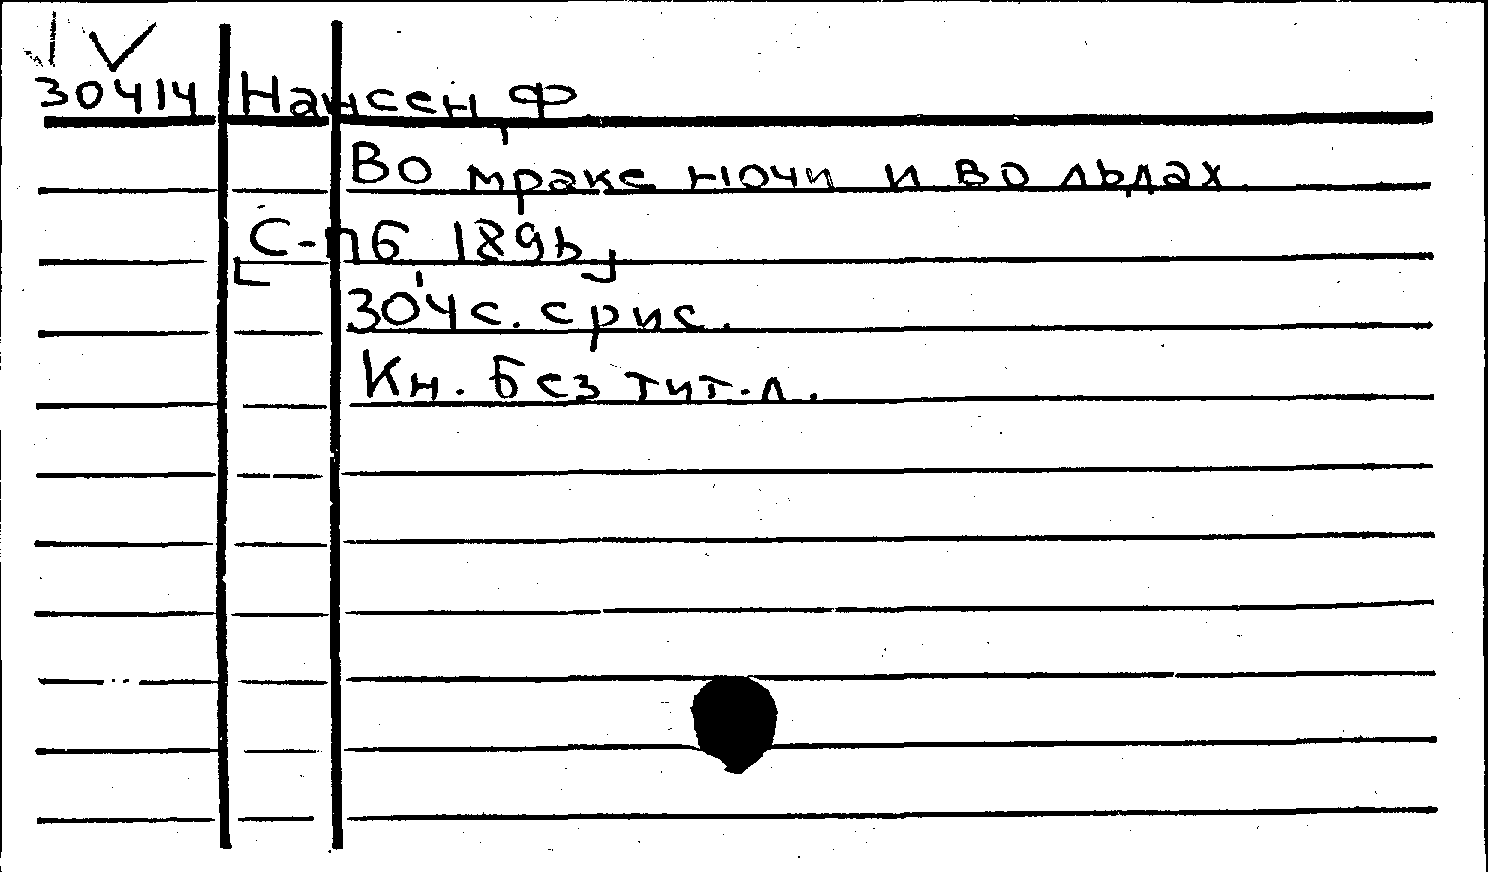 30414 Нансен, Ф
Во мраке ночи и во льдах.
[С-пб, 189
304 с. с рис.
Кн. без тит. л.